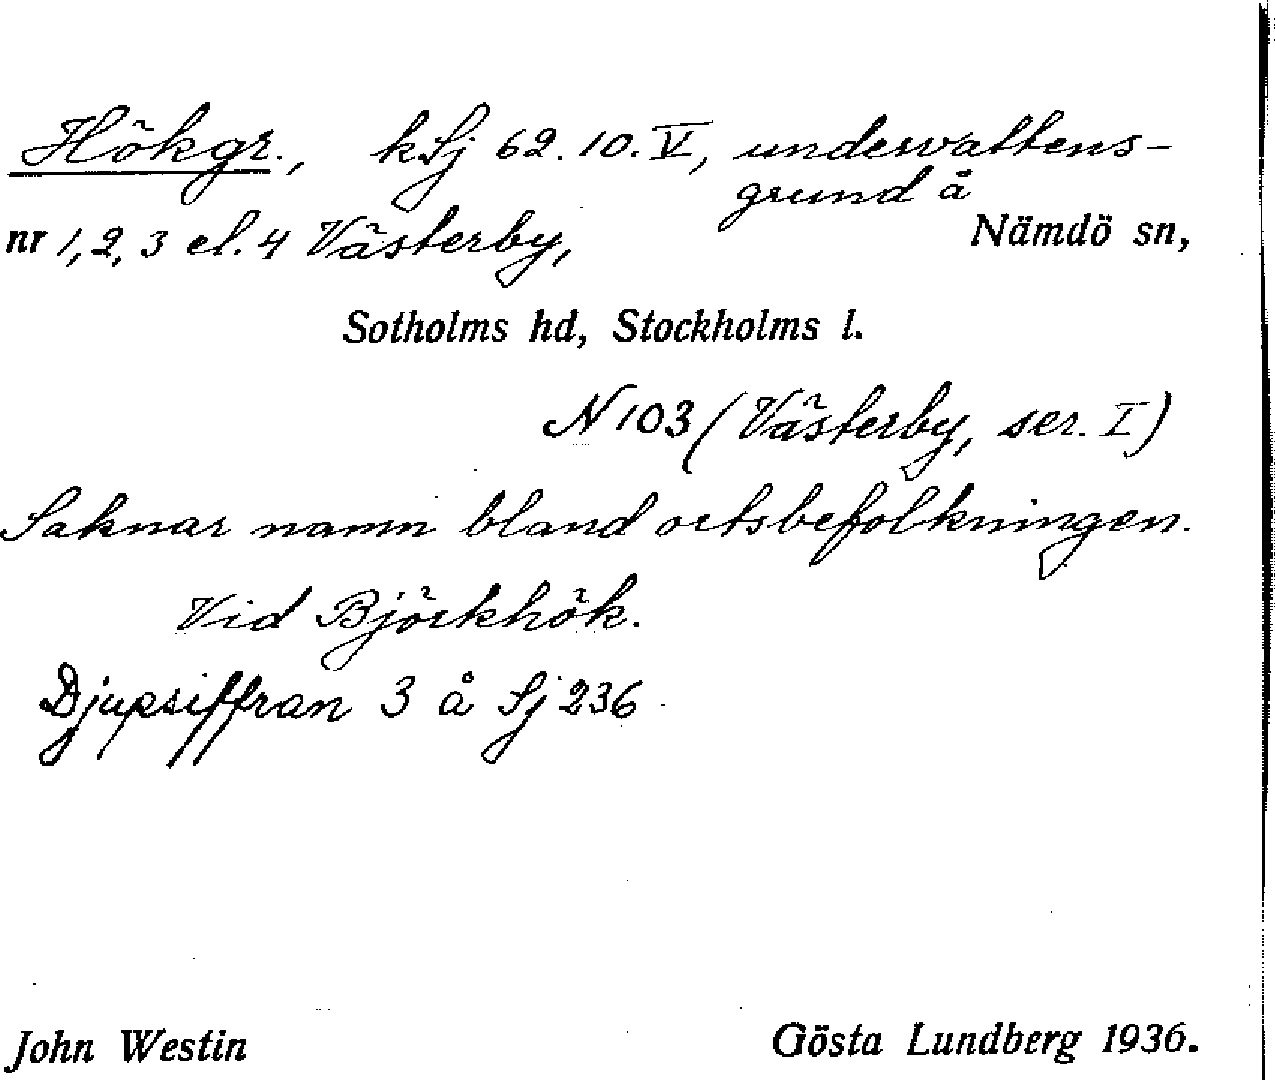 Hökgr., kSj 62.10.V, undervattens-
grund å
nr 1, 2, 3 el. 4 Västerby, Nämdö sn,
Sotholms hd, Stockholms l.
N 103 (Västerby, ser. I)
Saknar namn bland ortsbefolkningen.
Vid Björkhök.
Djupsiffran 3 å Sj 236
John Westin Gösta Lundberg 1936.